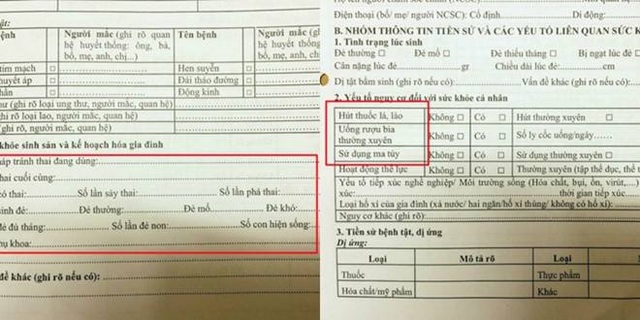 ật:
ệnh Người mắc (ghi rõ quan hệ huyết thống: ông, bà, bố, mẹ, anh, chị...) Tên bệnh Người mắc hệ huyết thống bố, mẹ, anh
tim mạch □ Hen suyễn □
huyết áp □ Đái tháo đường □
thần □ Động kinh □
hư (ghi rõ loại ung thư, người mắc, quan hệ)
ghi rõ loại lao, người mắc, quan hệ)
ghi rõ, người mắc, quan hệ)
khỏe sinh sản và kế hoạch hóa gia đình
háp tránh thai đang dùng:
thai cuối cùng:
có thai: Số lần sảy thai: Số lần phá thai:
sinh đẻ: Đẻ thường: Đẻ mổ: Đẻ khó:
đẻ đủ tháng: Số lần đẻ non: Số con hiện sống:
hụ khoa:
đề khác (ghi rõ nếu có):
Điện thoại (bố/ mẹ/ người NCSC): Cố định Di động:
B. NHÓM THÔNG TIN TIỀN SỬ VÀ CÁC YẾU TỐ LIÊN QUAN SỨC K
1. Tình trạng lúc sinh
Đẻ thường □ Đẻ mổ □ Đẻ thiếu tháng □ Bị ngạt lúc đẻ □
Cân nặng lúc đẻ: gr Chiều dài lúc đẻ: cm
Dị tật bẩm sinh (ghi rõ nếu có): Vấn đề khác (ghi rõ nếu có):
2. Yếu tố nguy cơ đối với sức khỏe cá nhân
Hút thuốc lá, lào Không □ Có □ Hút thường xuyên □
Uống rượu bia thường xuyên Không □ Có □ Số ly cốc uống/ngày......
Sử dụng ma túy Không □ Có □ Sử dụng thường xuyên □
Hoạt động thể lực Không □ Có □ Thường xuyên (tập thể dục, thể t
Yếu tố tiếp xúc nghề nghiệp/ Môi trường sống (Hóa chất, bụi, ồn, virút,...
xúc: thời gian tiếp xúc
Loại hố xí của gia đình (xả nước/ hai ngăn/hố xí thùng/ không có hố xí):
Nguy cơ khác (ghi rõ):
3. Tiền sử bệnh tật, dị ứng
Dị ứng:
Loại Mô tả rõ Loại
Thuốc Thực phẩm
Hóa chất/mỹ phẩm Khác